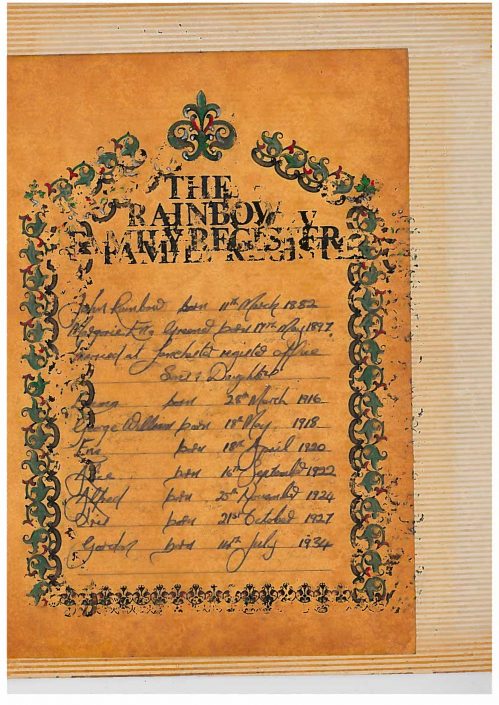 THE
RAINBOW
FAMILY REGISTER
John Rainbow born 11th March 1882
Marjorie Etta born 19th May 1897
Married at register office
Sons & Daughters
born 28th March 1916
George William born 18th May 1918
born 18th April 1920
born 16th September 1922
Alfred born 25th November 1924
born 21st October 1927
Gordon born 14th July 1934